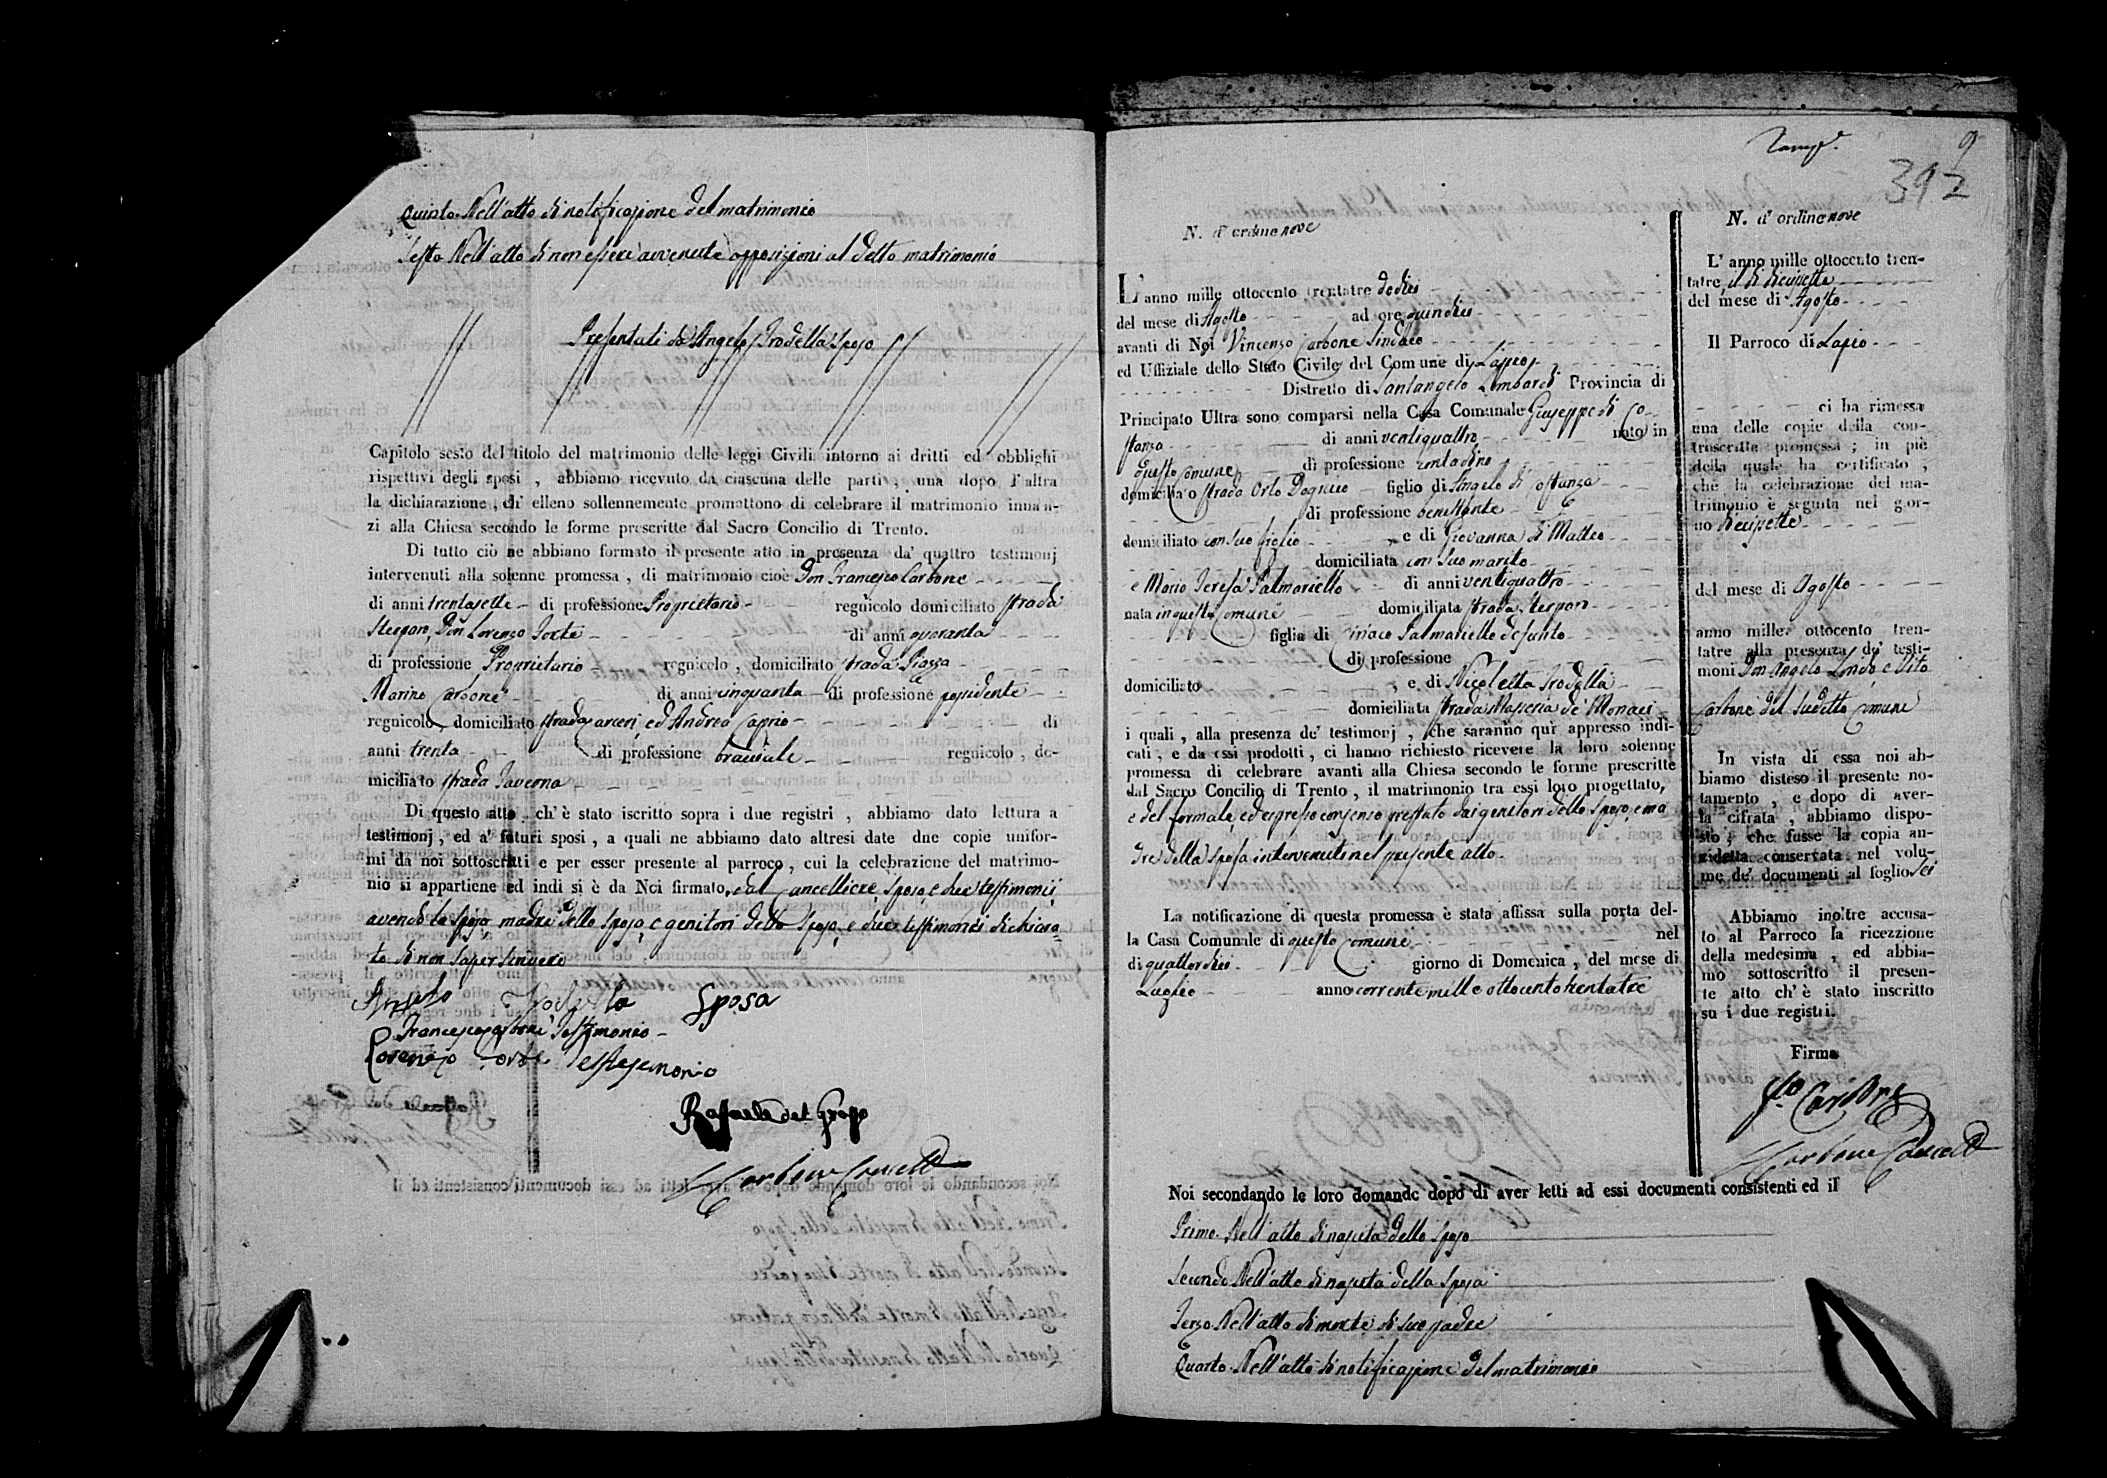 Quinto Nell'atto di notificazione del matrimonio
Sesto Nell'atto di non essere avvenute opposizioni al detto matrimonio
Presentati da Angelo Frodella sposo
Capitolo sesto del titolo del matrimonio delle leggi Civili intorno ai dritti ed obblighi
rispettivi degli sposi , abbiamo ricevuto da ciascuna delle parti , una dopo l'altra
la dichiarazione , ch' elleno sollennemente promettono di celebrare il matrimonio innan-
zi alla Chiesa secondo le forme prescritte dal Sacro Concilio di Trento.
Di tutto ciò ne abbiamo formato il presente atto in presenza da' quattro testimonj
intervenuti alla solenne promessa , di matrimonio cioè Don Francesco Carbone
di anni trentasette di professione Proprietario regnicolo domiciliato strada
Don Lorenzo Forte di anni quaranta
di professione Proprietario regnicolo , domiciliato strada Piazza
Marino Carbone di anni cinquanta di professione possidente
regnicolo domiciliato strada carceri, ed Andrea Caprio di
anni trenta di professione bracciale regnicolo , do-
miciliato strada Taverna
Di questo atto , ch' è stato iscritto sopra i due registri , abbiamo dato lettura a
testimonj , ed a' futuri sposi , a quali ne abbiamo dato altresì date due copie unifor-
mi da noi sottoscritti e per esser presente al parroco , cui la celebrazione del matrimo-
nio si appartiene ed indi si è da Noi firmato, dal Cancelliere, sposo e due testimonii
avendo la sposa madre dello sposo, e genitori dello sposo, e due testimonii dichiara-
to di non saper scrivere
Angelo Frodella Sposo
Francesco Carbone Testimonio
Lorenzo Forte Testimonio
Raffaele del Grosso
Carbone Cancell
9
392
N. d' ordine nove
L' anno mille ottocento trentatre dodici
del mese di Agosto ad ore quindici
avanti di Noi Vincenzo Carbone Sindaco
ed Uffiziale dello Stato Civile del Comune di Lapio
Distretto di Santangelo Lombardi Provincia di
Principato Ultra sono comparsi nella Casa Comunale Giuseppe di Co-
stanzo di anni ventiquattro nato in
questo Comune di professione contadino
domiciliato strada Orto figlio di Angelo di Costanza
di professione benestante
domiciliato con suo figlio e di Giovanna di Matteo
domiciliata con suo marito
e Maria Teresa Palmariello di anni ventiquattro
nata in questo Comune domiciliata strada
figlia di Ciriaco Palmariello defunto
di professione
domiciliato , e di Nicoletta Frodella
domiciliata strada Masseria de' Monaci
i quali , alla presenza de' testimonj , che saranno quì appresso indi-
cati , e da essi prodotti , ci hanno richiesto ricevere la loro solenne
promessa di celebrare avanti alla Chiesa secondo le forme prescritte
dal Sacro Concilio di Trento , il matrimonio tra essi loro progettato,
e del formale, ed espresso consenso prestato dai genitori dello sposo, e ma
dre della sposa intervenuti nel presente atto.
La notificazione di questa promessa è stata affissa sulla porta del-
la Casa Comunale di questo Comune nel
di quattordici giorno di Domenica , del mese di
Luglio anno corrente mille ottocento trentatre
Noi secondando le loro domande dopo di aver letti ad essi documenti consistenti ed il
Primo. Nell'atto di nascita dello sposo
Secondo Nell'atto di nascita della sposa
Terzo Nell'atto di morte di suo padre
Quarto. Nell'atto di notificazione del matrimonio
N. d' ordine nove
L' anno mille ottocento tren-
tatre il dì diecisette
del mese di Agosto
Il Parroco di Lapio
ci ha rimessa
una delle copie della con-
troscritta promessa ; in piè
della quale ha certificato ,
che la celebrazione del ma-
trimonio è seguita nel gior-
no diecisette
del mese di Agosto
anno mille ottocento tren-
tatre alla presenza de' testi-
moni Don Angelo e Vito
Carbone del sudetto Comune
In vista di essa noi ab-
biamo disteso il presente no-
tamento , e dopo di aver-
la cifrata , abbiamo dispo-
sto , che fusse la copia an-
zidetta conservata nel volu-
me de' documenti al foglio sei
Abbiamo inoltre accusa-
to al Parroco la ricezzione
della medesima , ed abbia-
mo sottoscritto il presen-
te atto ch' è stato inscritto
su i due registri.
Firma
Carbone
Carbone Cancell